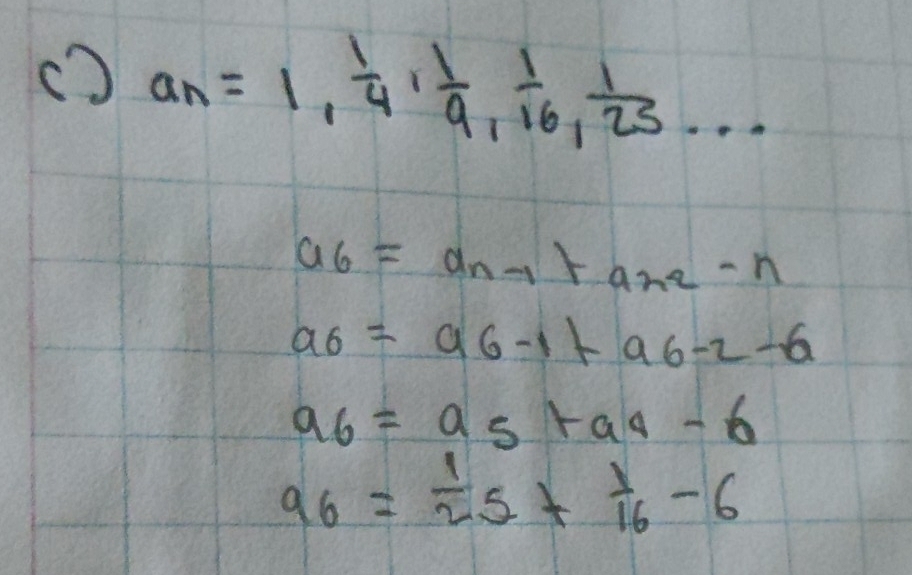 c) an = 1, 1/4, 1/9, 1/16, 1/25 ...
a6 = an-1 + an-2 - n
a6 = a6-1 + a6-2 - 6
a6 = a5 + a4 - 6
a6 = 1/25 + 1/16 - 6